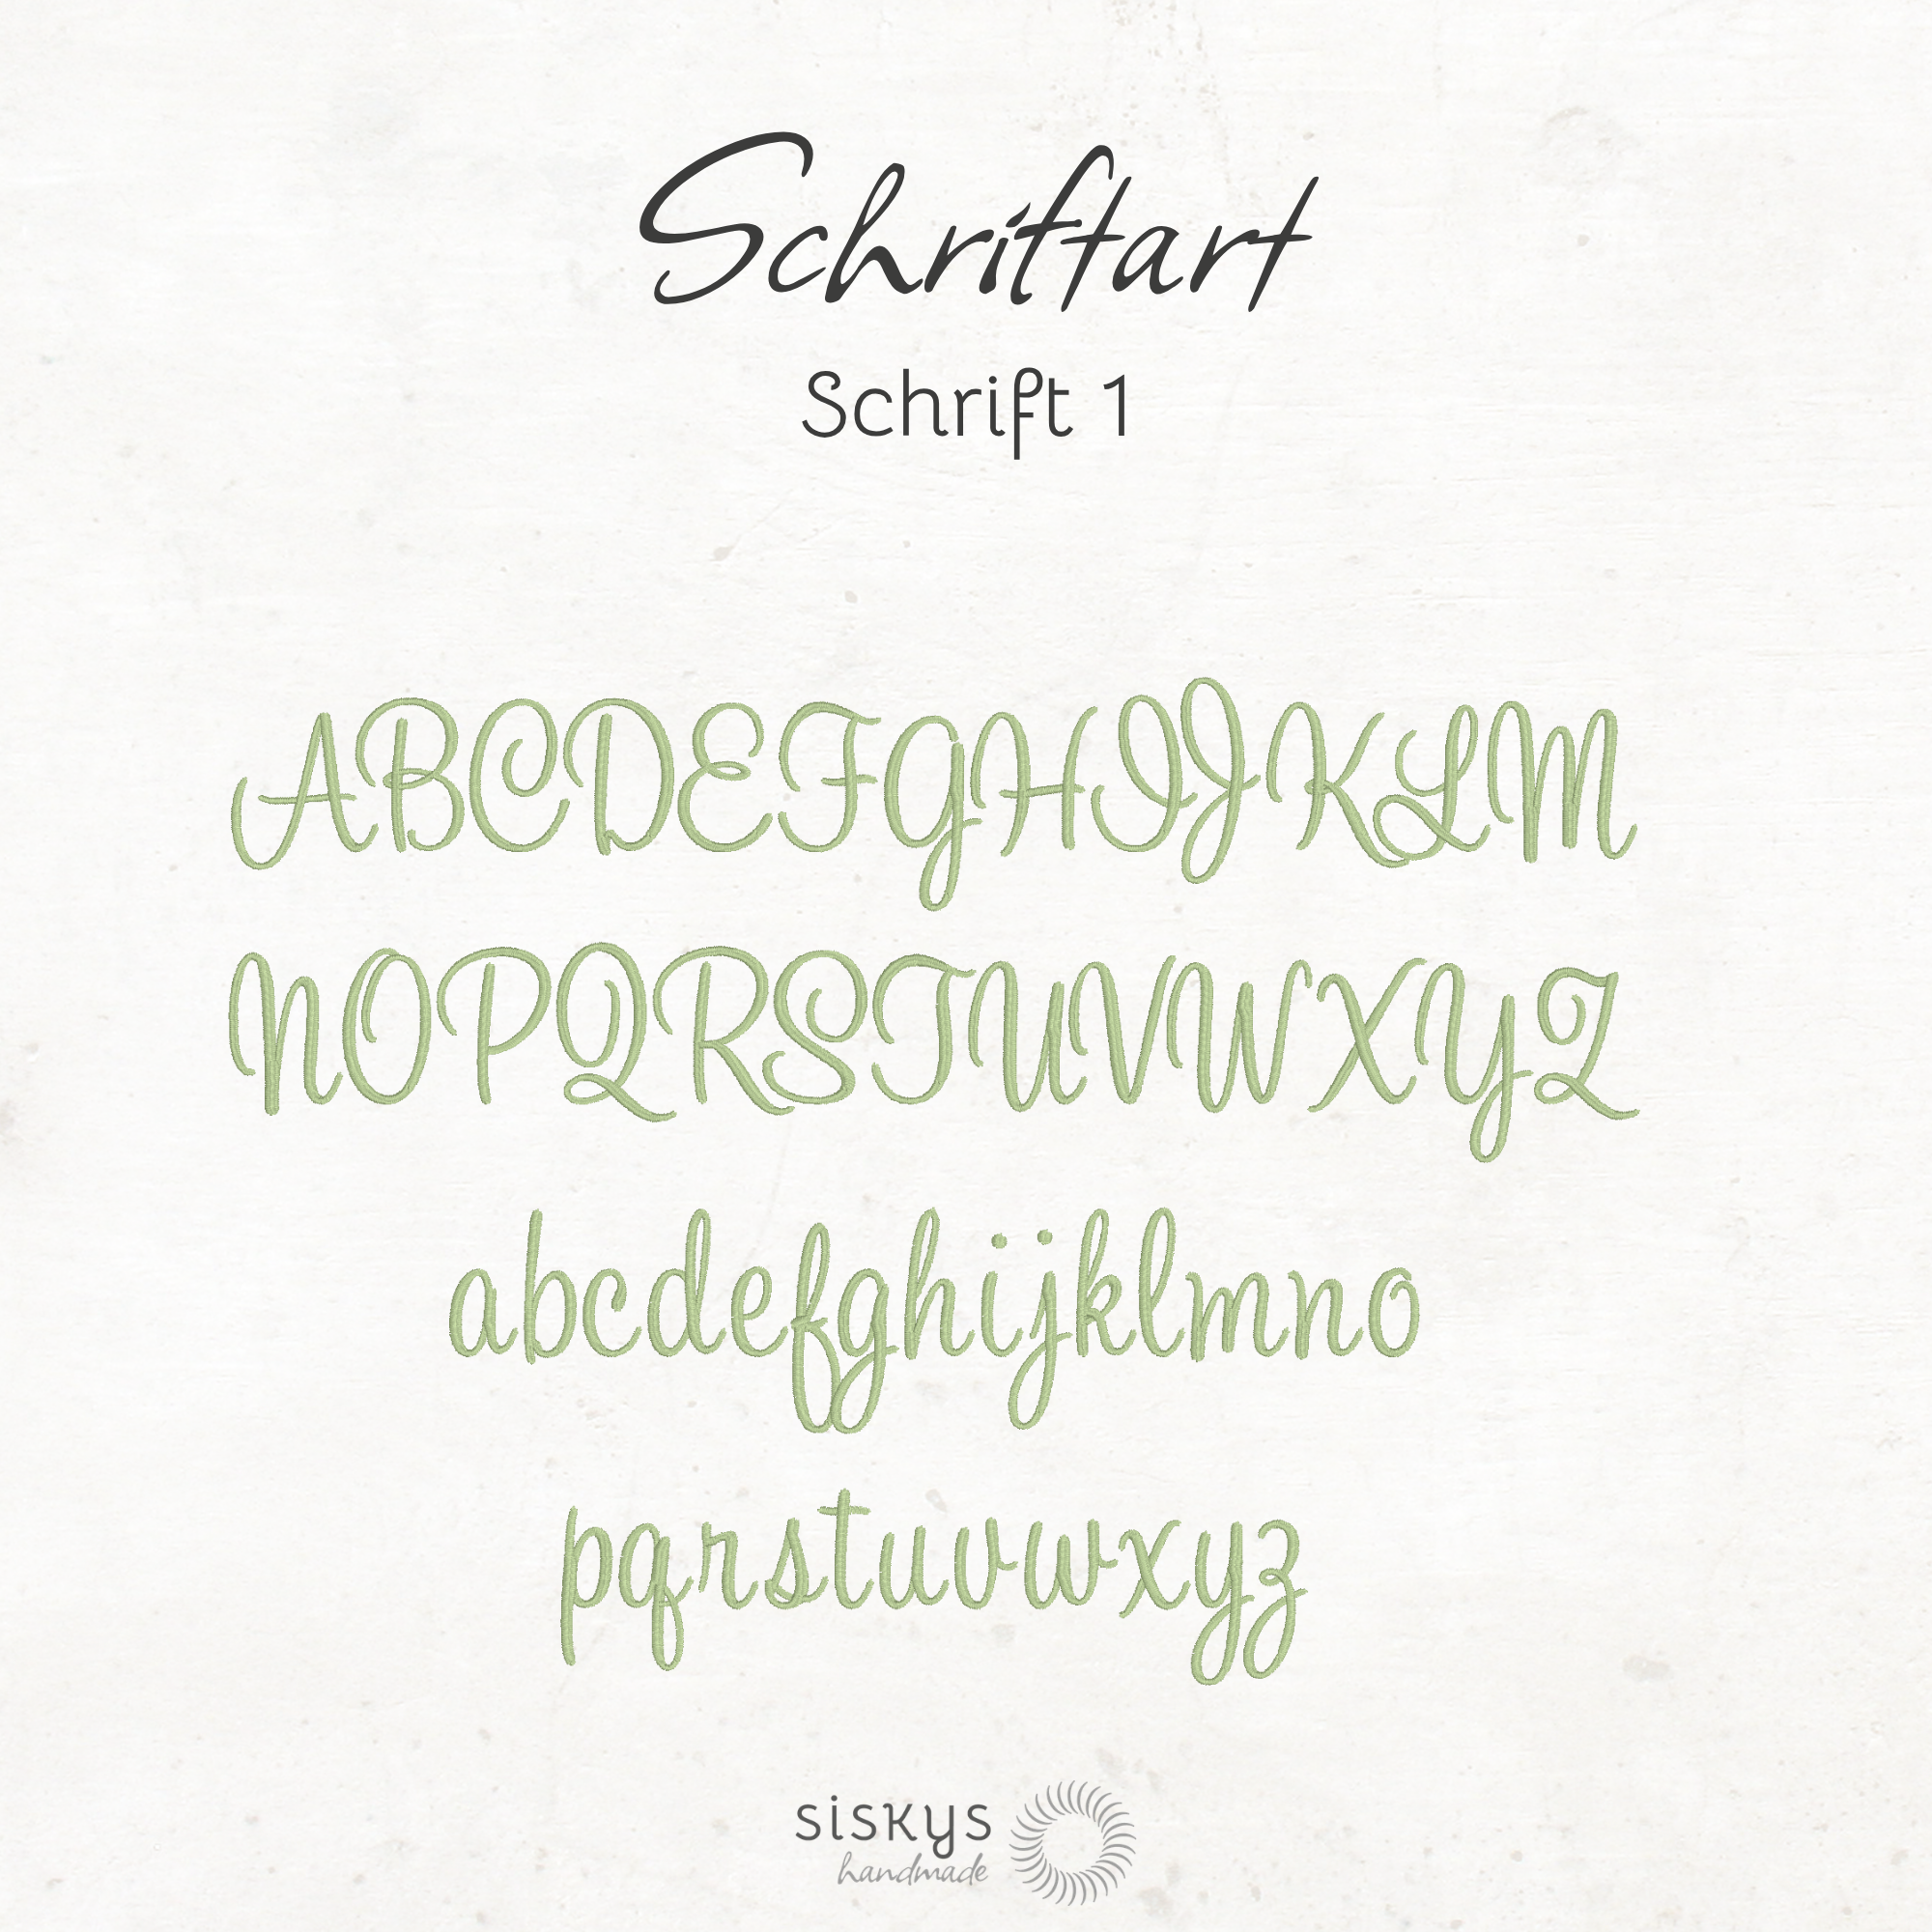 Schriftart
Schrift 1
ABCDEFGHIJKLM
NOPQRSTUVWXYZ
abcdefghijklmno
pqrstuvwxyz
siskys
handmade